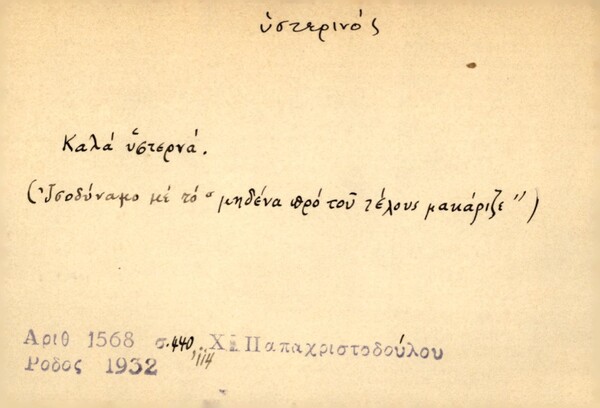 ὑστερινός
Καλά ὕστερνά.
(Ἰσοδύναμο μέ τό "μηδένα πρό τοῦ τέλους μακάριζε")
Αριθ 1568 σ. 440, 114 Χ. Παπαχριστοδούλου
Ρόδος 1932